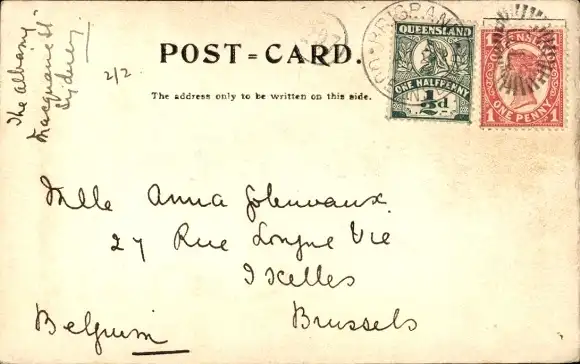 "The Albany"
Macquarie St
Sydney
2/2.
POST=CARD.
The address only to be written on this side.
BRISBAN
QUEENSLAND
ONE HALFPENNY
1/2d
1 1
ONE PENNY
Mlle Anna
27 Rue Longue Vie
Ixelles
Brussels
Belgium